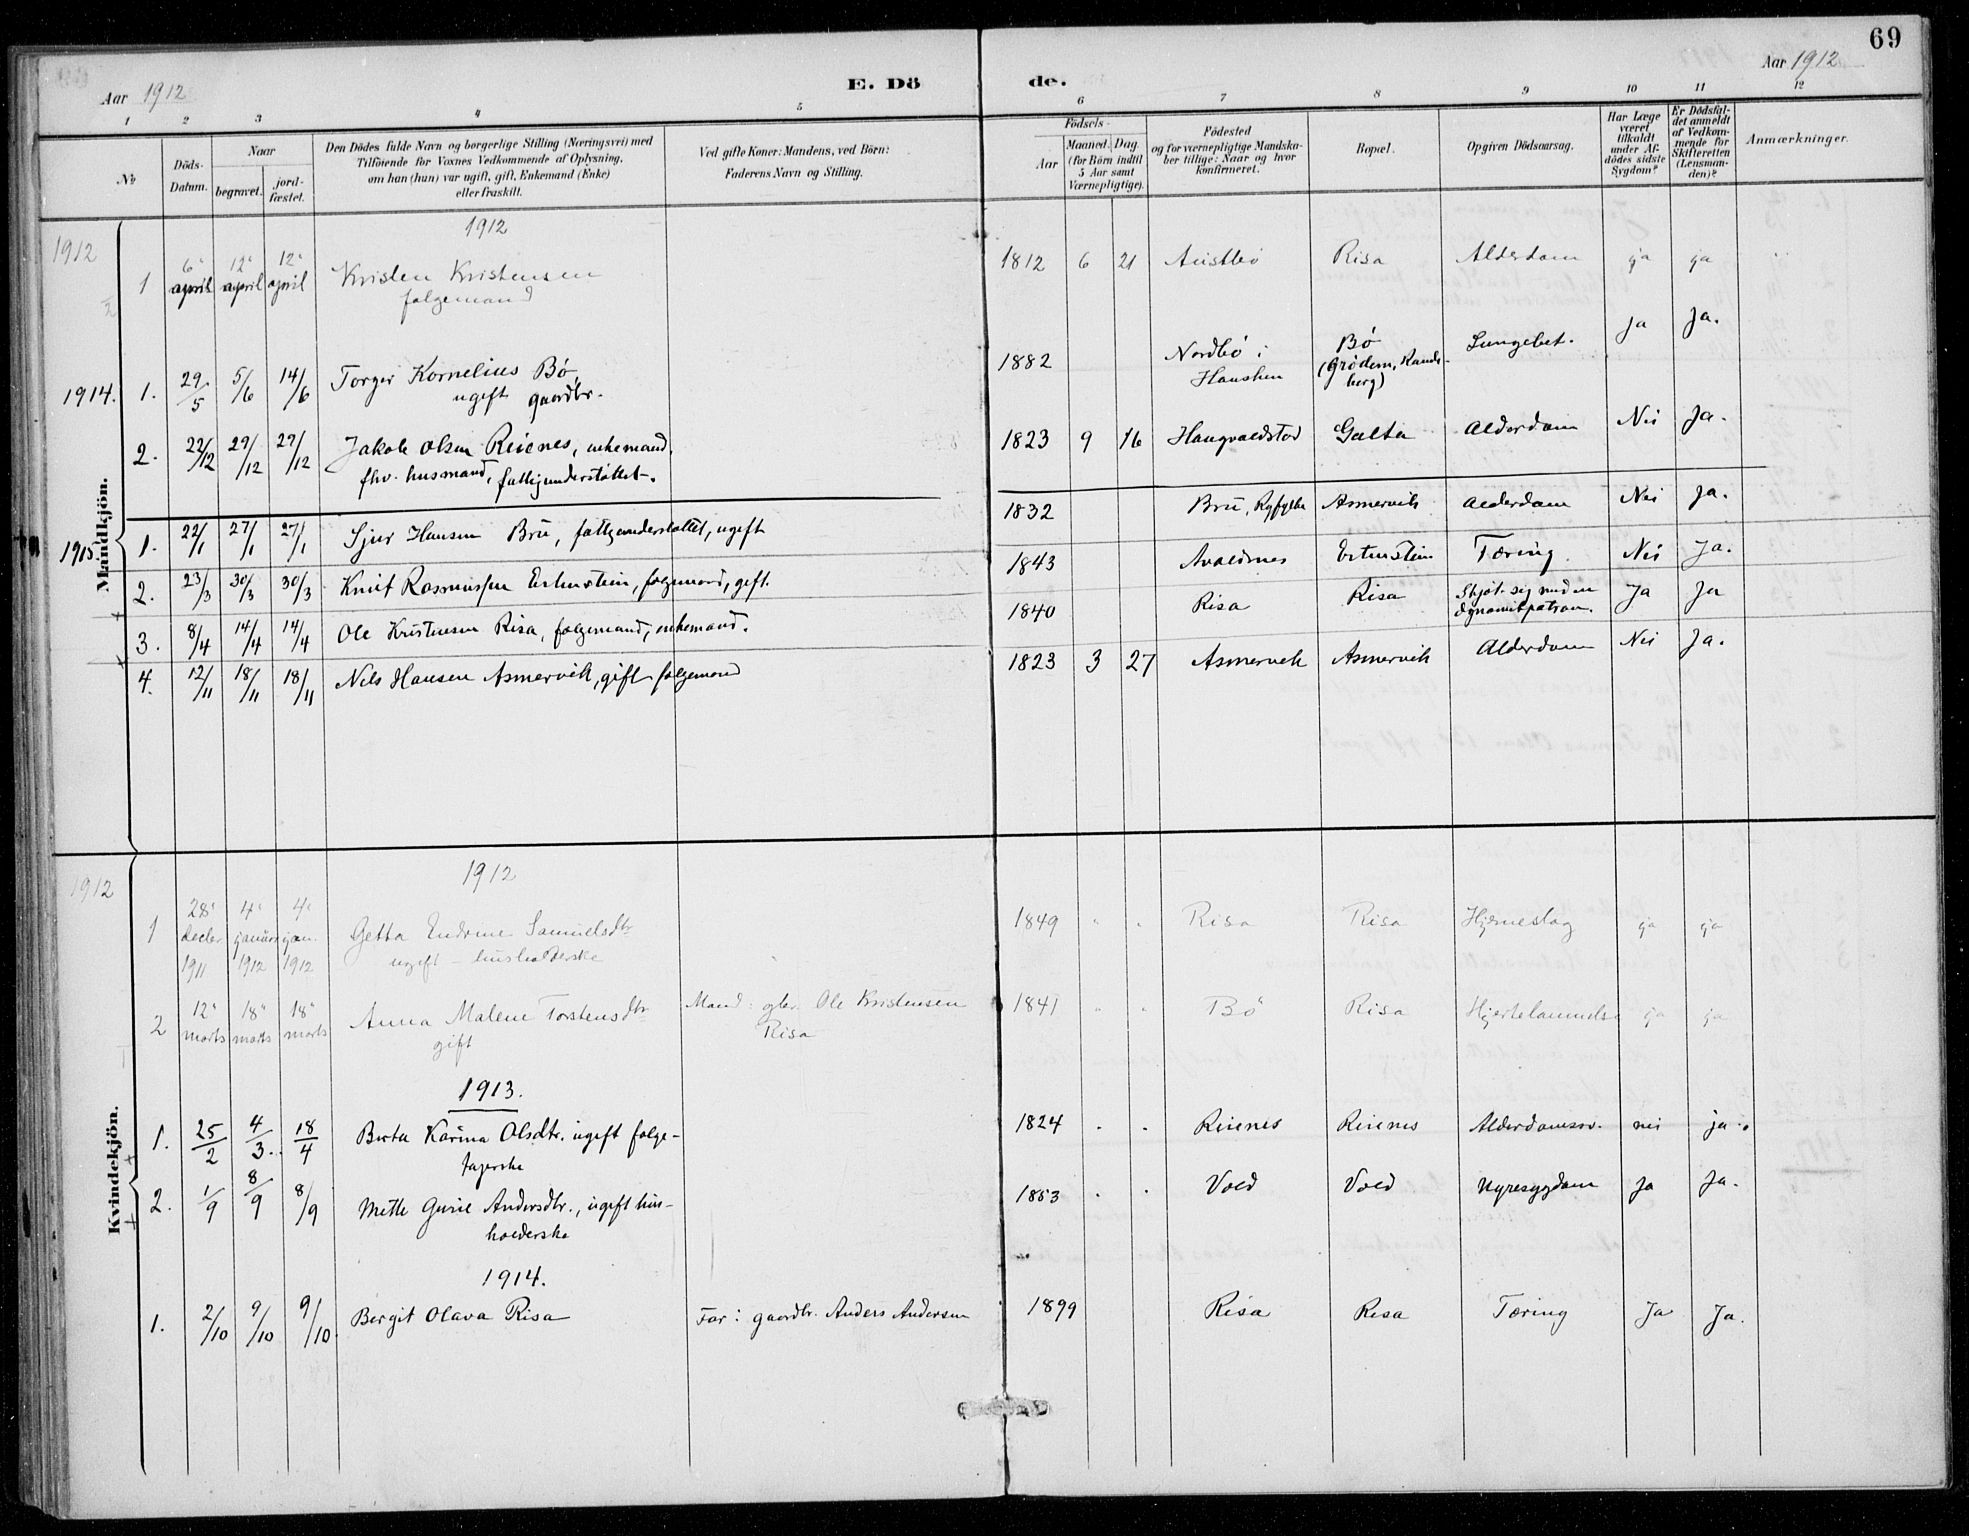 69
Aar 1912 E. Dö de. Aar 1912
1 2 3 4 5 6 7 8 9 10 11 12
No Döds-Datum. Naar begravet. jordfæstet. Den Dödes fulde Navn og borgerlige Stilling (Næringsvei) med Tilföiende for Voxnes Vedkommende af Oplysning, om han (hun) var ugift, gift, Enkemand (Enke) eller fraskilt. Ved gifte Koner: Mandens, ved Börn: Faderens Navn og Stilling. Födsels- Aar Maaned. Dag. (for Börn indtil 5 Aar samt Værnepligtige). Födested og for værnepligtige Mandskaber tillige: Naar og hvor konfirmeret. Bopæl. Opgiven Dödsaarsag. Har Læge været tilkaldt under Afdödes sidste Sygdom? Er Dödsfaldet anmeldt af Vedkommende for Skifteretten (Lensmanden)? Anmærkninger.
Mandkjön.
1912
1912
1 6' april 12' april 12' april Kristen Kristensen 1812 6 21 Austbø Risa Alderdom ja ja
folgemand
1914. 1. 29/5 5/6 14/6 Torger Kornelius Bø, 1882 Nordbø i Bø Lungebet. Ja Ja.
ugift gaardbr. Haushen (Grødem, Randeberg)
2. 22/12 29/12 29/12 Jakob Olsen Reienes, enkemand, 1823 9 16 Haugvaldstad Galta Alderdom Nei Ja.
fhv. husmand, fattigunderstøttet.
1915 1. 22/1 27/1 27/1 Sjur Hansen Bru, fattigunderstøttet, ugift 1832 Bru, Ryfylke Asmervik Alderdom Nei Ja.
2. 23/3 30/3 30/3 Knut Rasmussen Ertenstein, folgemand, gift. 1843 Avaldsnes Ertenstein Tæring. Nei Ja.
3. 8/4 14/4 14/4 Ole Kristensen Risa, folgemand, enkemand. 1840 Risa Risa Skjøt sig med en dynamitpatron. Ja Ja
4. 12/11 18/11 18/11 Nels Hansen Asmervik, gift folgemand 1823 3 27 Asmervik Asmervik Alderdom Nei Ja.
Kvindekjön.
1912
1912
1 28' decbr 1911 4' januar 1912 4' jan. 1912 Getta Endrine Samuelsdtr 1849 " " Risa Risa Hjerneslag ja ja
ugift - husholderske
2 12' marts 18' marts 18' marts Anna Malene Torstensdtr Mand: gbr. Ole Kristensen 1841 " " Bø Risa Hjertelammelse ja ja
gift Risa
1913.
1. 25/2 4/3. 18/4 Berta Karina Olsdtr. ugift folge- 1824 . . Reienes Reienes Alderdomssv. nei ja.
tagerske
2. 1/9 8/9 8/9 Mette Gurie Andersdtr., ugift hus- 1853 . . Vold Vold Nyresygdom Ja Ja.
holderske
1914.
1. 2/10 9/10 9/10 Bergit Olava Risa Far: gaardbr. Anders Andersen 1899 Risa Risa Tæring Ja Ja.